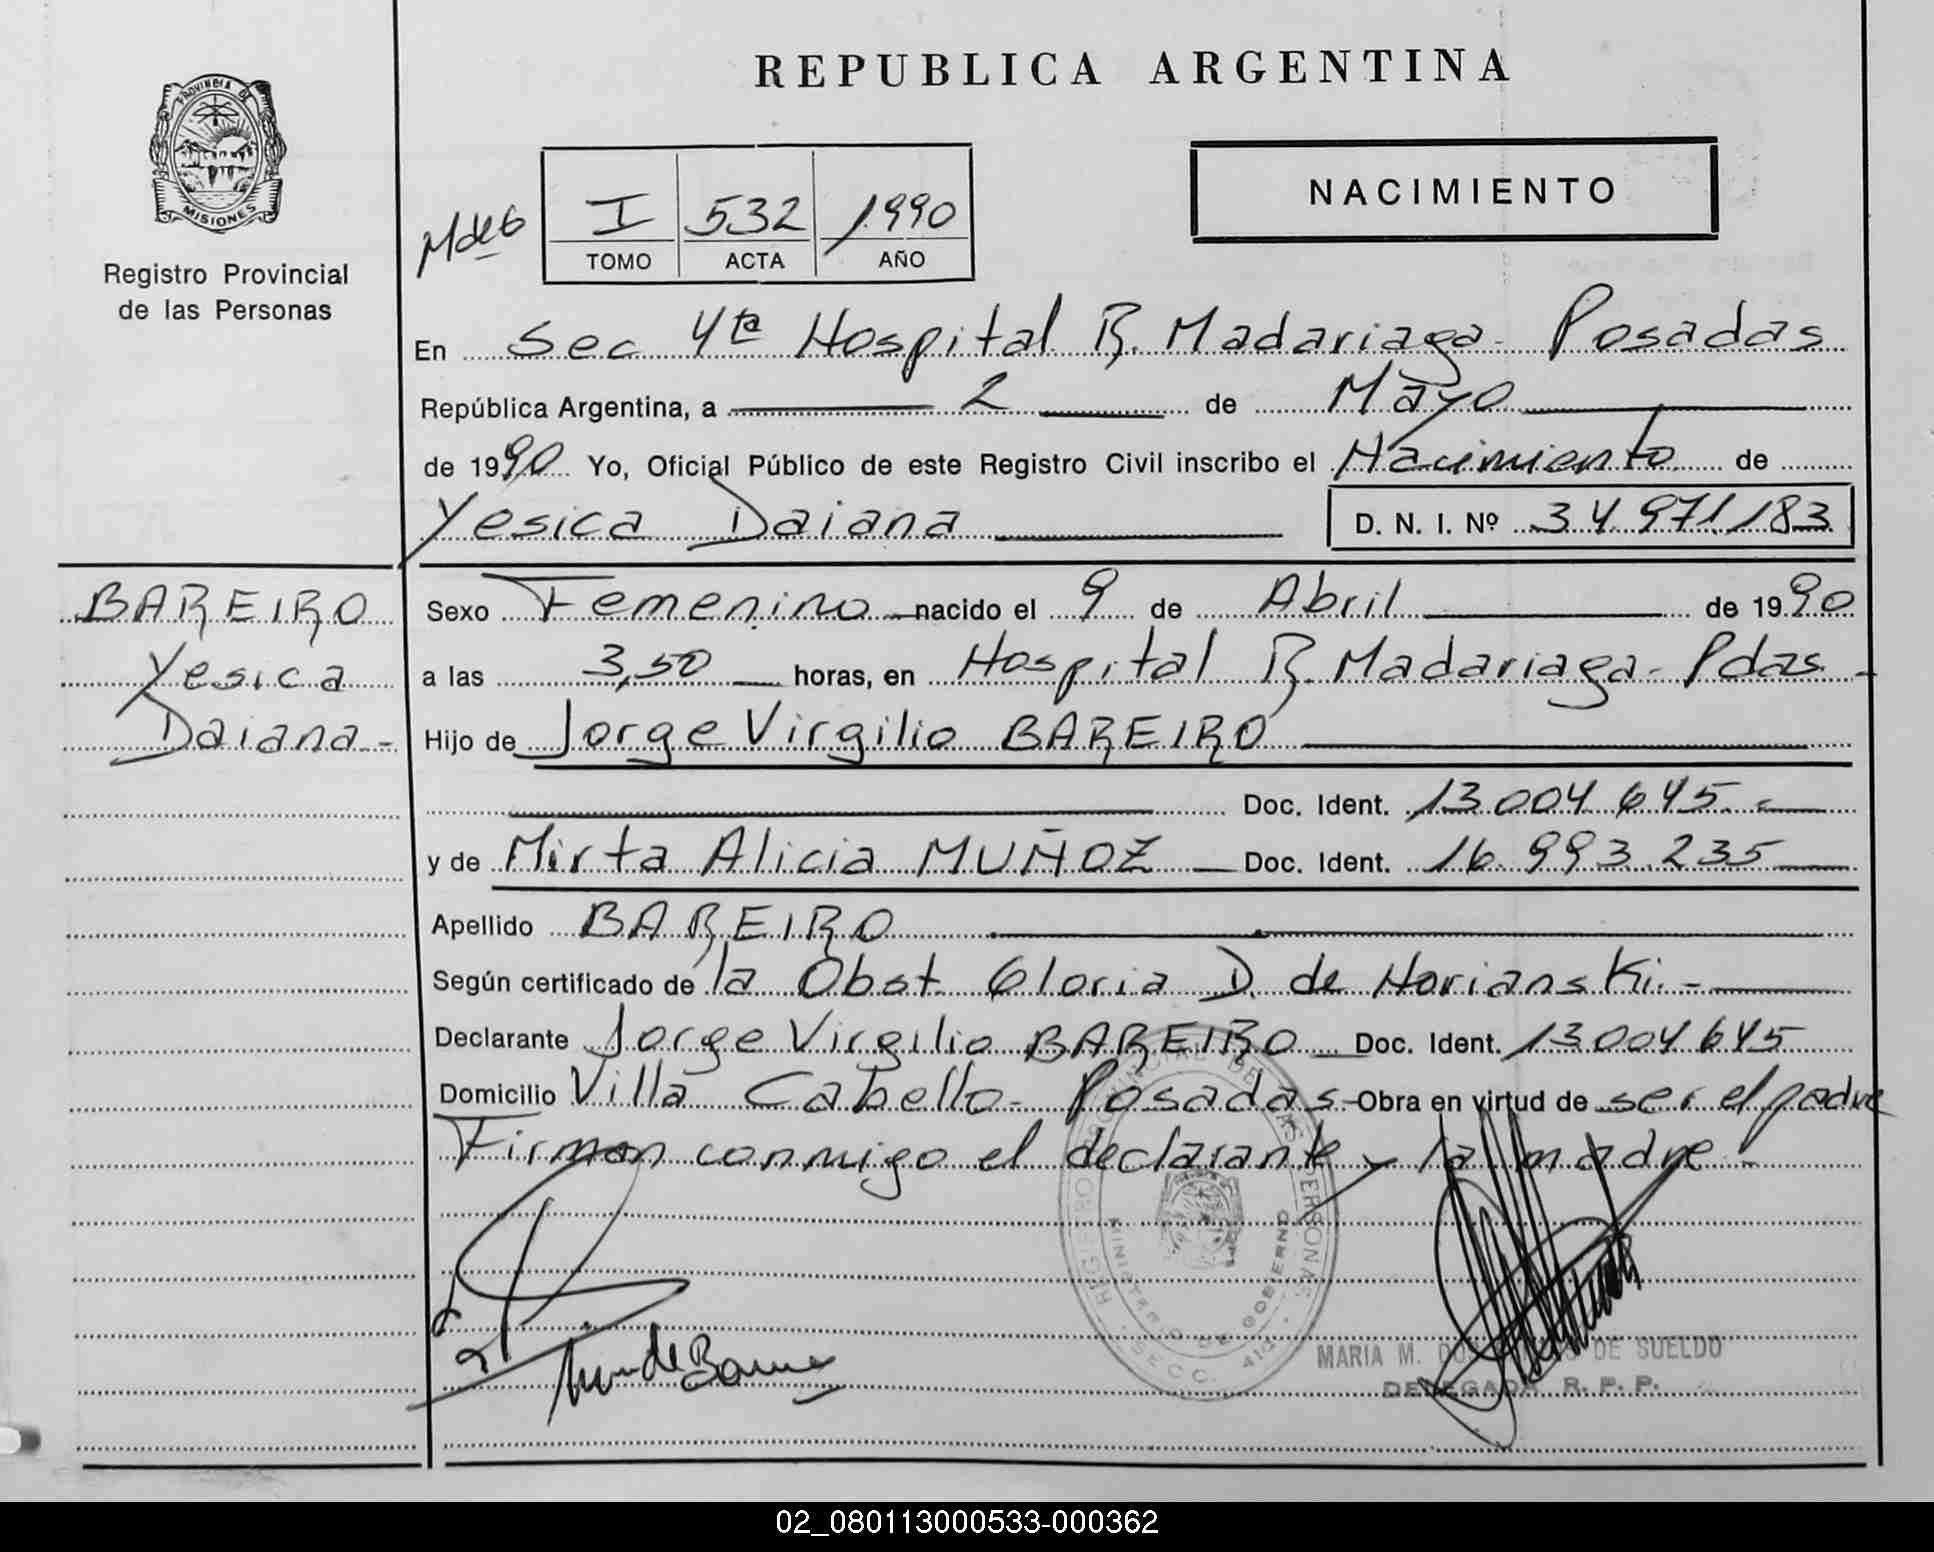 REPUBLICA ARGENTINA
PROVINCIA DE
MISIONES
Registro Provincial
de las Personas
NACIMIENTO
I 532 1990
TOMO ACTA AÑO
En Sec 4ta Hospital R. Madariaga - Posadas
República Argentina, a 2 de Mayo
de 1990 Yo, Oficial Público de este Registro Civil inscribo el Nacimiento de
Yesica Daiana D. N. I. Nº 34 971 183
BAREIRO
Yesica
Daiana -
Sexo Femenino nacido el 9 de Abril de 1990
a las 3,50 horas, en Hospital R. Madariaga - Pdas -
Hijo de Jorge Virgilio BAREIRO
Doc. Ident. 13 004 645 -
y de Mirta Alicia MUÑOZ Doc. Ident. 16 993 235
Apellido BAREIRO
Según certificado de la Obst Gloria D. de Horianski. -
Declarante Jorge Virgilio BAREIRO Doc. Ident. 13 004 645
Domicilio Villa Cabello - Posadas - Obra en virtud de ser el padre
Firman conmigo el declarante y la madre -
REGISTRO PROVINCIAL DE LAS PERSONAS
MINISTERIO DE GOBIERNO
SECC. 4ta
MARIA M. DE SUELDO
DELEGADA R. P. P.
02_080113000533-000362